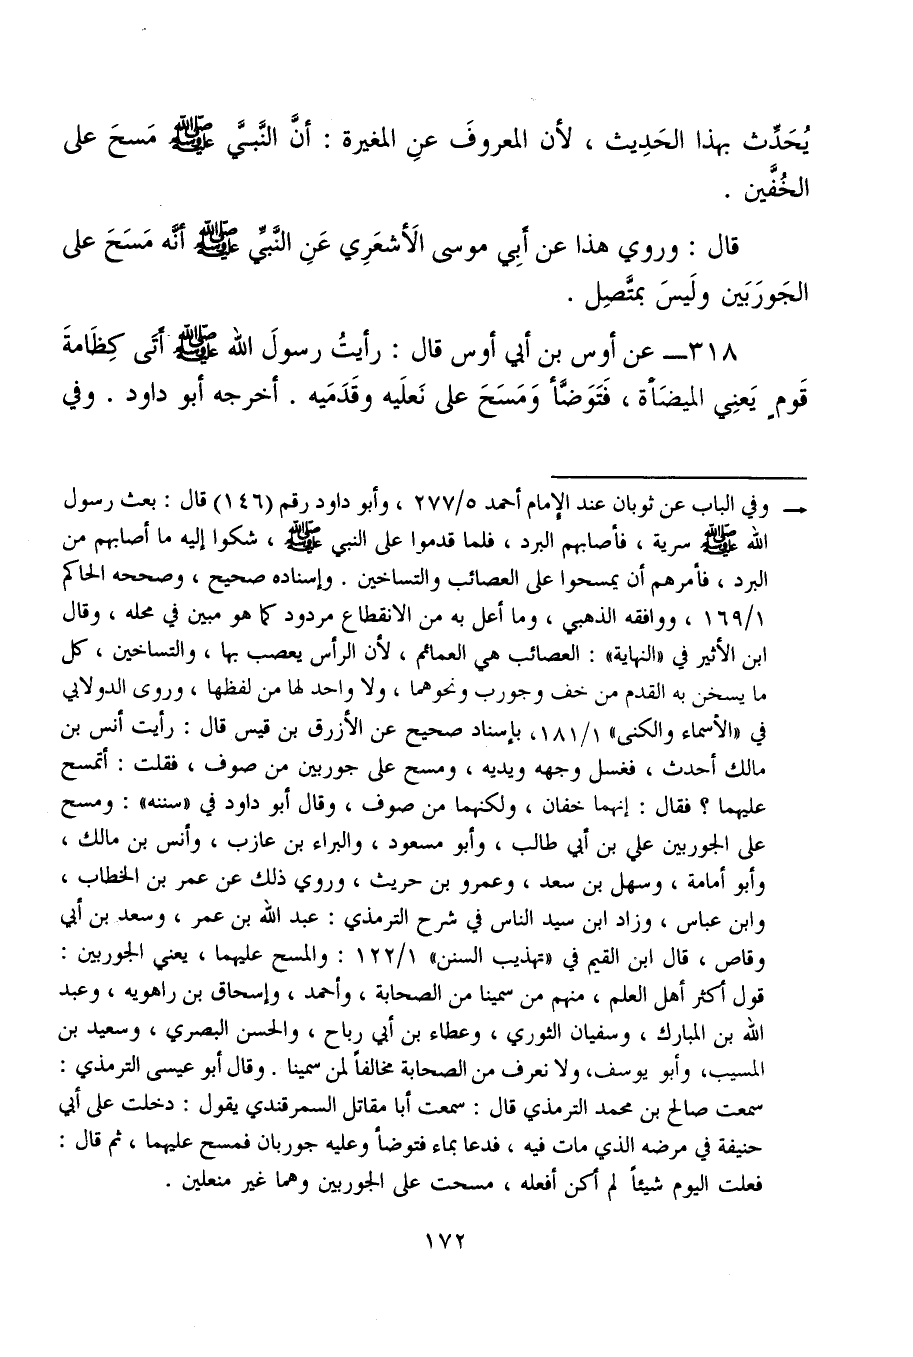 يُحَدِّث بهذا الحَدِيث ، لأن المعروفَ عنِ المغيرة : أنَّ النَّبيَّ ﷺ مَسحَ على
الخُفَّين .
قال : وروي هذا عن أَبِي موسى الَأشعَرِي عَنِ النَّبيِّ ﷺ أنَّه مَسَحَ على
الجَورَبَين ولَيسَ بمتَّصِل .
٣١٨ــ عن أوس بن أبي أوس قال : رأيتُ رسولَ الله ﷺ أَتَى كِظَامةَ
قَومٍ يَعنِي الميضَأة ، فَتَوَضَّأ وَمَسَحَ على نَعلَيه وقَدَمَيه . أخرجه أبو داود . وفي
← وفي الباب عن ثوبان عند الإمام أحمد ٢٧٧/٥ ، وأبو داود رقم (١٤٦) قال : بعث رسول
الله ﷺ سرية ، فأصابهم البرد ، فلما قدموا على النبي ﷺ ، شكوا إليه ما أصابهم من
البرد ، فأمرهم أن يمسحوا على العصائب والتساخين . وإسناده صحيح ، وصححه الحاكم
١٦٩/١ ، ووافقه الذهبي ، وما أعل به من الانقطاع مردود كما هو مبين في محله ، وقال
ابن الأثير في «النهاية» : العصائب هي العمائم ، لأن الرأس يعصب بها ، والتساخين ، كل
ما يسخن به القدم من خف وجورب ونحوهما ، ولا واحد لها من لفظها ، وروى الدولابي
في «الأسماء والكنى» ١٨١/١، بإسناد صحيح عن الأزرق بن قيس قال : رأيت أنس بن
مالك أحدث ، فغسل وجهه ويديه ، ومسح على جوربين من صوف ، فقلت : أتمسح
عليهما ؟ فقال : إنهما خفان ، ولكنهما من صوف ، وقال أبو داود في «سننه» : ومسح
على الجوربين علي بن أبي طالب ، وأبو مسعود ، والبراء بن عازب ، وأنس بن مالك ،
وأبو أمامة ، وسهل بن سعد ، وعمرو بن حريث ، وروي ذلك عن عمر بن الخطاب ،
وابن عباس ، وزاد ابن سيد الناس في شرح الترمذي : عبد الله بن عمر ، وسعد بن أبي
وقاص ، قال ابن القيم في «تهذيب السنن» ١٢٢/١ : والمسح عليهما ، يعني الجوربين :
قول أكثر أهل العلم ، منهم من سمينا من الصحابة ، وأحمد ، وإسحاق بن راهويه ، وعبد
الله بن المبارك ، وسفيان الثوري ، وعطاء بن أبي رباح ، والحسن البصري ، وسعيد بن
المسيب، وأبو يوسف، ولا نعرف من الصحابة مخالفاً لمن سمينا . وقال أبو عيسى الترمذي :
سمعت صالح بن محمد الترمذي قال : سمعت أبا مقاتل السمرقندي يقول : دخلت على أبي
حنيفة في مرضه الذي مات فيه ، فدعا بماء فتوضأ وعليه جوربان فمسح عليهما ، ثم قال :
فعلت اليوم شيئاً لم أكن أفعله ، مسحت على الجوربين وهما غير منعلين .
١٧٢